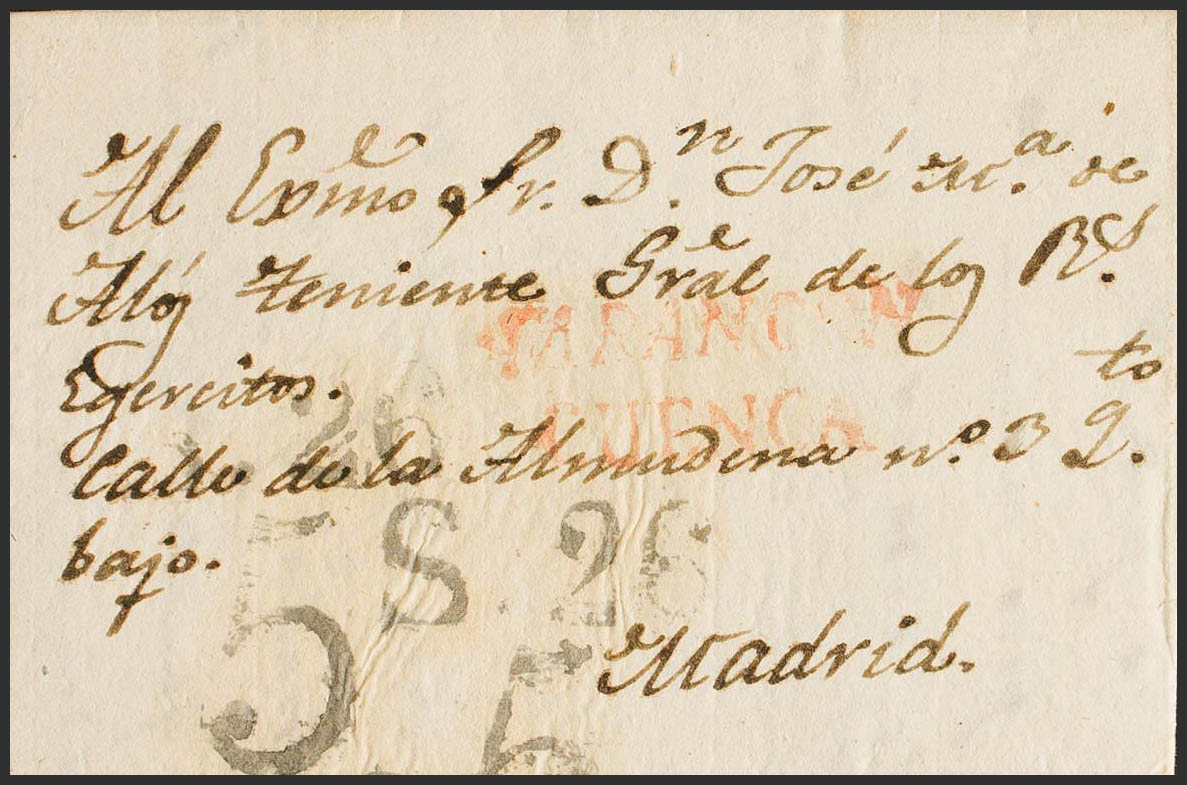 Al Exmo Sr. Dn. José Ma. de
Alós teniente Gral de los Rs.
Egercitos.
Calle de la Almudena nº. 3 Qto.
bajo.
Madrid.
TARANCON
CUENCA
26
5 S. 26
5
5